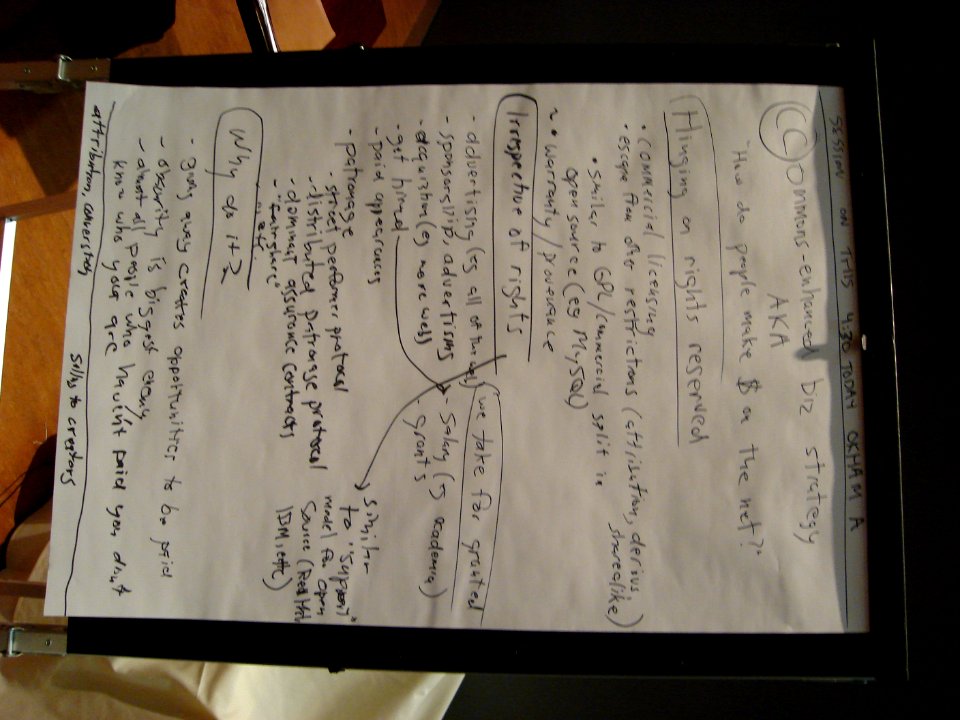 SESSION ON THIS 4:30 TODAY OKHAM A
(CC)ommons-enhanced biz strategy
AKA
"How do people make $ on the net?"
Hinging on rights reserved
· commercial licensing
· escape from other restrictions (attribution, derivs, sharealike)
· similar to GPL/commercial split in
opensource (eg MySQL)
~ · warranty/provenance
Irrespective of rights
we take for granted
- advertising (eg all of the web)
- sponsorship, advertising
- acquisition (eg more web)
- get hired
- paid appearances
- salary (eg academia)
- grants
- patronage
- street performer protocol
- distributed patronage protocol
- dominant assurance contracts
- "fundable"
similar
to "support"
model for open
source (Red Hat
IBM, etc)
Why do it?
- giving away creates opportunities to be paid
- obscurity is biggest enemy
- almost all people who haven't paid you don't
know who you are
attribution conversely
selling to creators